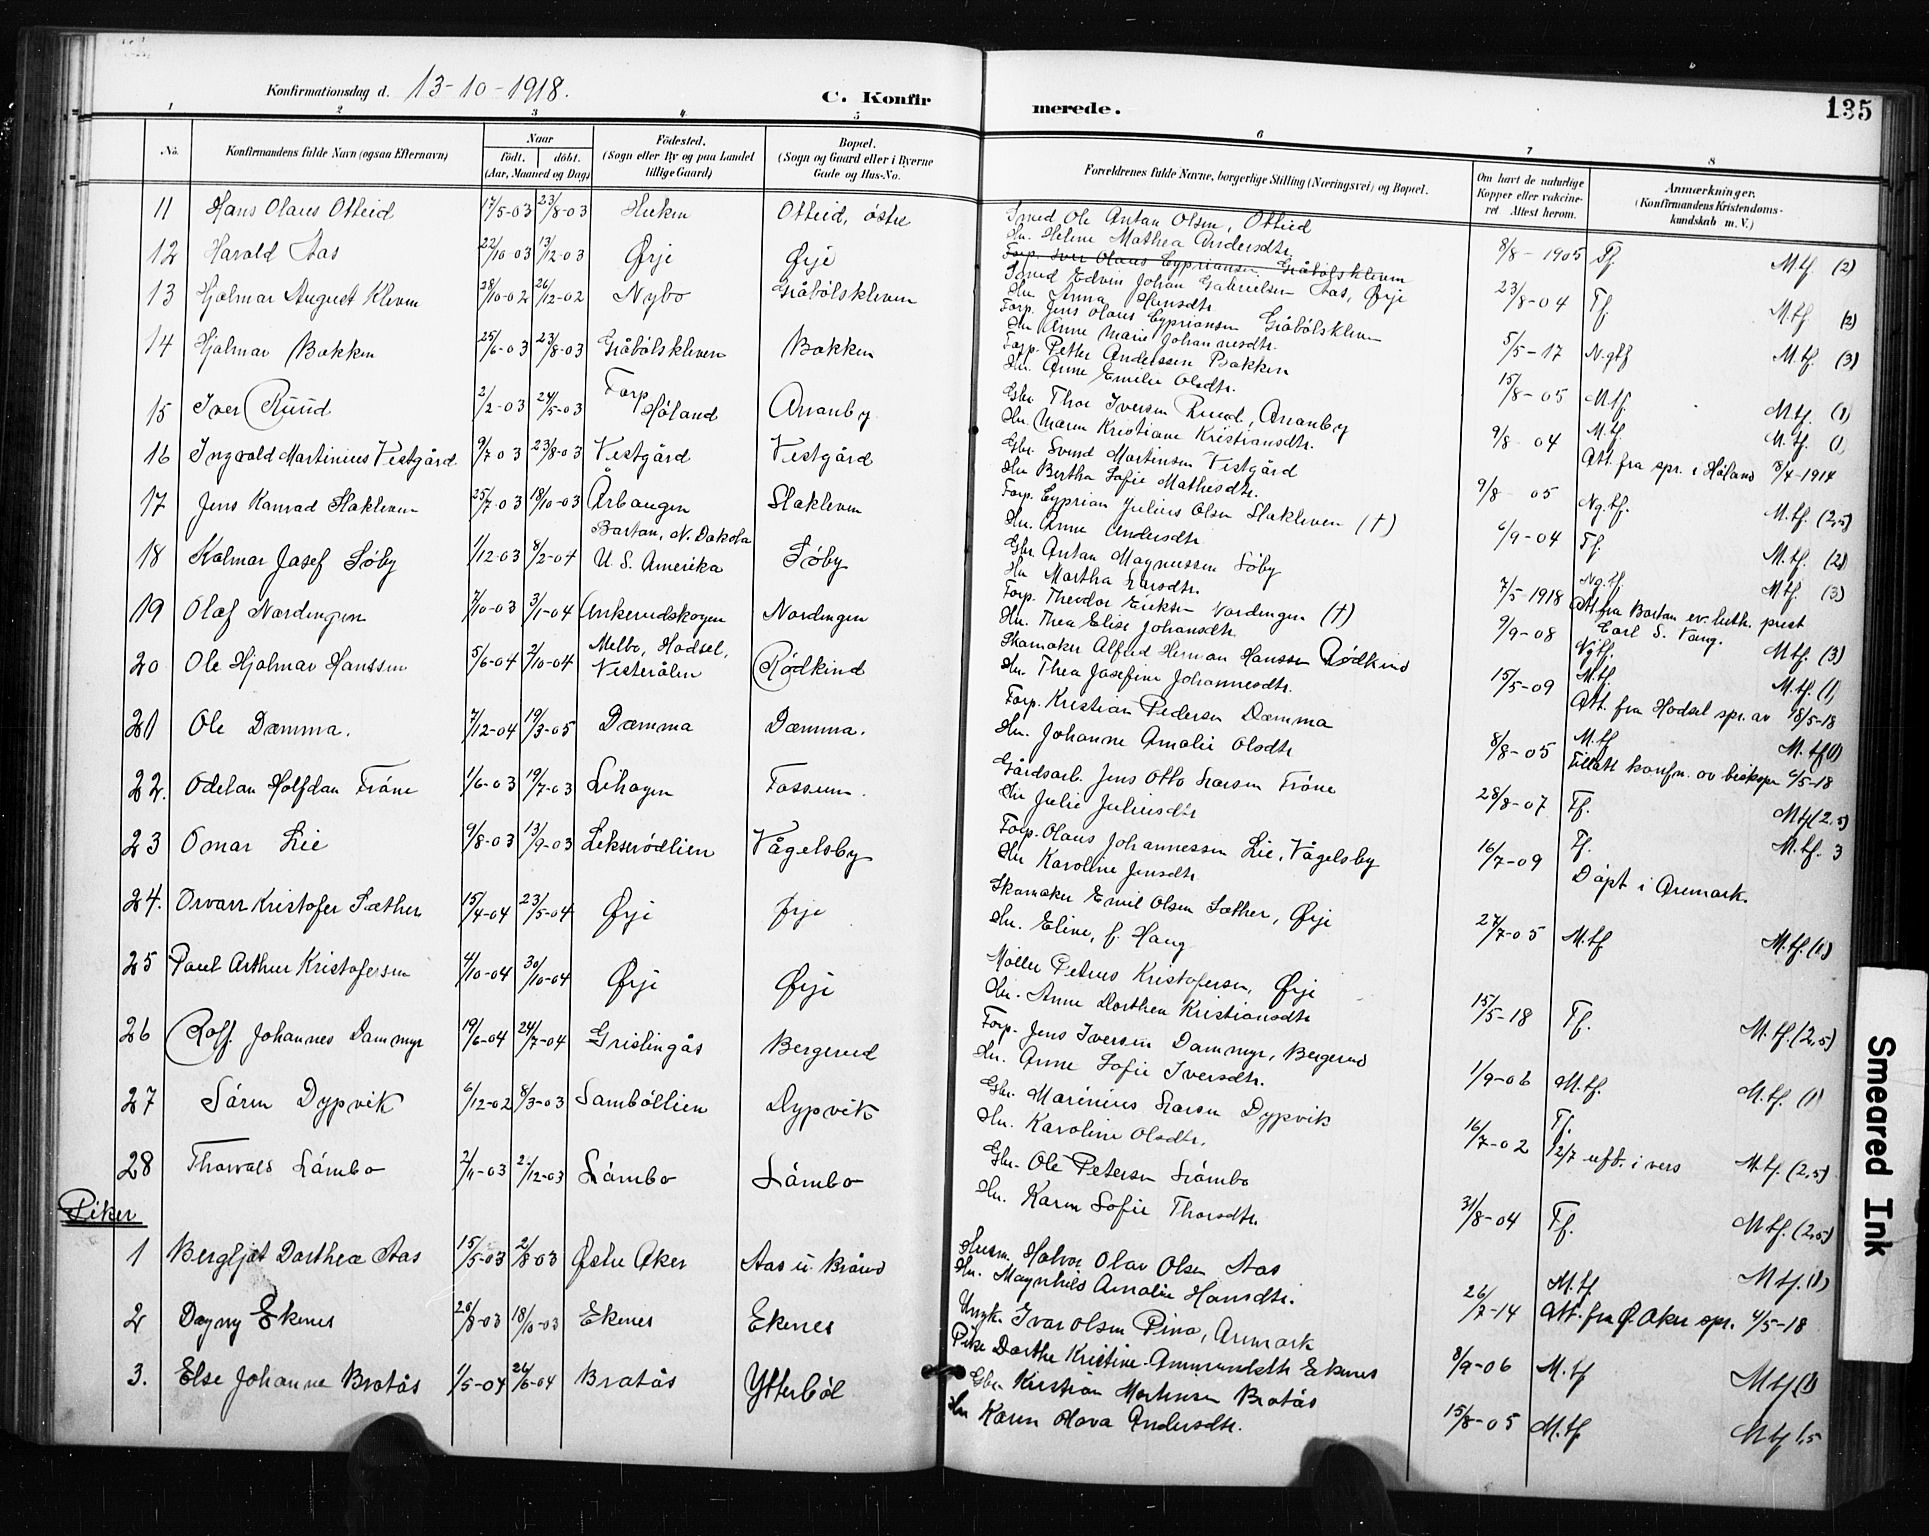 Konfirmationsdag d. 13-10-1918.
C. Konfirmerede.
135
1 2 3 4 5 6 7 8
No.
Konfirmandens fulde Navn (ogsaa Efternavn)
Naar
født. døbt.
(Aar, Maaned og Dag)
Fødested.
(Sogn eller By og paa Landet
tillige Gaard)
Bopæl.
(Sogn og Gaard eller i Byerne
Gade og Hus-No.
Forældrenes fulde Navne, borgerlige Stilling (Næringsvei) og Bopæl.
Om havt de naturlige
Kopper eller vakcine-
ret Attest herom.
Anmærkninger.
(Konfirmandens Kristendoms-
kundskab m. V.)
11 Hans Olaus Otteid 17/5-03 23/8-03 Otteid, østre
Smed Ole Anton Olsen, Otteid
Hu. Helene Mathea Andersdtr.
8/8-1905 Tf. M.tf. (2)
12 Harald Aas 22/10-03 13/12-03 Ørje Ørje
Forp. Iver Olaus Cypriansen Gråbölskleven
Smed Edvin Johan Gabrielsen Aas, Ørje
Hu. Anna Hansdtr.
23/8-04 Tf. M.tf. (2)
13 Hjalmar August Kleven 28/10-02 26/12-02 Nybo Gråbölskleven
Forp. Jens Olaus Cypriansen Gråbölskleven
Hu. Anne Marie Johannesdtr.
5/5-17 N.gtf M.tf. (3)
14 Hjalmar Bakken 25/6-03 23/8-03 Gråbölskleven Bakken
Forp. Petter Anderssen Bakken
Hu. Anne Emilie Olsdtr.
15/8-05 M.tf. M.tf. (1)
15 Iver Ruud 2/2-03 24/5-03 Forp Höland Arranby
Gbr. Thor Iversen Ruud, Arranby
Hu. Maren Kristiane Kristiansdtr.
9/8 04 M.tf. M.tf. (1)
Att. fra spr. i Höland 8/4-1914
16 Ingvald Martinius Vestgård 9/7 03 23/8-03 Vestgård Vestgård
Gbr. Svend Martinsen Vestgård
Hu Bertha Sofie Mathisdtr.
9/8 05 Ng.tf. M.tf. (2,5)
17 Jens Konrad Slakleven 25/7-03 18/10-03 Årbaugen Slakleven
Forp. Cyprian Julius Olsen Slakleven (†)
Hu. Anne Andersdtr
6/9-04 Tf. M.tf. (2)
18 Kalmar Josef Söby 1/12-03 8/2-04 Bartan, N. Dakota
U. S. Amerika Söby
Gbr. Anton Magnussen Söby
Hu Martha Larsdtr.
7/5-1918 Ng.tf. M.tf. (3)
Att. fra Bartan ev. luth. prest
Carl S. Vang.
19 Olaf Nordengen 7/10-03 3/1-04 Ankerudskogen Nordengen
Forp. Theodor Eriksen Nordengen (†)
Hu. Thea Elise Johansdtr
9/9-08 Ng.tf. M.tf. (3)
20 Ole Hjalmar Hanssen 5/6-04 2/10-04 Melbo, Hadsel,
Vesterålen Rödkind
Skomaker Alfred Herman Hanssen Rödkind
Hu. Thea Josefine Johannesdtr.
15/5-09 M.tf. M.tf. (1)
Att. fra Hadsel spr. av 18/5-18
21 Ole Dæmma. 7/12-04 19/3-05 Dæmma Dæmma.
Forp. Kristian Pedersen Dæmma
Hu. Johanne Amalie Olsdtr
8/8-05 M.tf M.tf (1)
Tillatt konfn. av biskopen 6/5-18
22. Odelan Halfdan Tröne 1/6-03 19/7-03 Lihagen Fossum.
Gårdsarb. Jens Otto Larsen Tröne
Hu Julie Juliusdtr
28/8-07 Tf. M.tf (2,5)
23 Omar Lie 9/8-03 13/9-03 Leksrödlien Vågelsby
Forp. Olaus Johannessen Lie, Vågelsby
Hu Karoline Jensdtr
16/7-09 Tf. M.tf. 3
Döpt i Aremark.
24. Orvarr Kristofer Sæther 15/4-04 23/5-04 Ørje Ørje
Skomaker Emil Olsen Sæther, Ørje
Hu. Eline, f. Haug
27/7-05 M.tf M.tf. (1)
25 Paul Arthur Kristofersen 4/10-04 30/10-04 Ørje Ørje
Møller Petrus Kristofersen, Ørje
Hu. Anne Dorthea Kristiansdtr
15/5-18 Tf. M.tf. (2,5)
26 Rolf Johannes Dammyr 19/6-04 24/7-04 Grislingås Bergerud
Forp. Jens Iversen Dammyr, Bergerud
Hu. Anne Sofie Iversdtr.
1/9-06 M.tf. M.tf. (1)
27 Sören Dypvik 6/12-02 8/3-03 Sambøllien Dypvik
Gbr. Marinius Larsen Dypvik
Hu. Karoline Olsdtr.
16/7-02 Tf. M.tf. (2,5)
12/7 uft. i vers
28 Thorvald Lömbo 2/11-03 /12-03 Lömbo Lömbo
Gbr. Ole Petersen Lömbo
Hu. Karen Sofie Thorsdtr.
31/8-04 Tf. M.tf. (2,5)
Piker
1 Bergljot Dorthea Aas 15/5-03 2/8-03 Østre Aker Aas u. Brård
Husm. Halvor Olav Olsen Aas
Hu. Magnhild Amalie Hansdtr.
26/7-14 M.tf. M.tf. (1)
Att. fra Ø. Aker spr. 4/5-18
2 Dagny Ekenes 20/8-03 18/10-03 Ekenes Ekenes
Ungk. Ivar Olsen Pino, Aremark
Pike Dorthe Kristine Ammundsdtr Ekenes
8/9-06 M.tf M.tf (1)
3. Else Johanne Bratås 1/5-04 26/6-04 Bratås Ytterböl
Gbr Kristian Martinsen Bratås
Hu Karen Olava Andersdtr.
15/8-05 M.tf M.tf 1,5
Smeared Ink